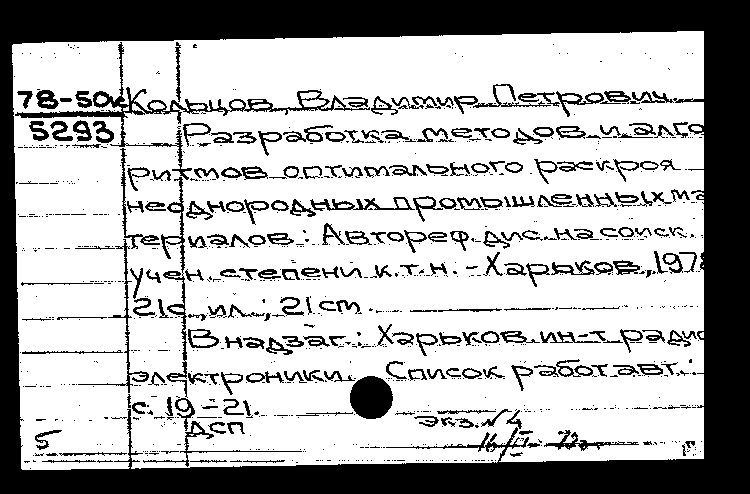 78-50к Кольцов, Владимир Петрович.
5293 Разработка методов и алго
ритмов оптимального раскроя
неоднородных промышленных ма
териалов: Автореф. дис. на соиск.
учен. степени к.т.н. - Харьков, 1978
21с., ил.; 21 см.
В надзаг.: Харьков. ин-т радио
электроники. Список работ авт.:
с. 19-21.
ДСП
экз. N 4
5